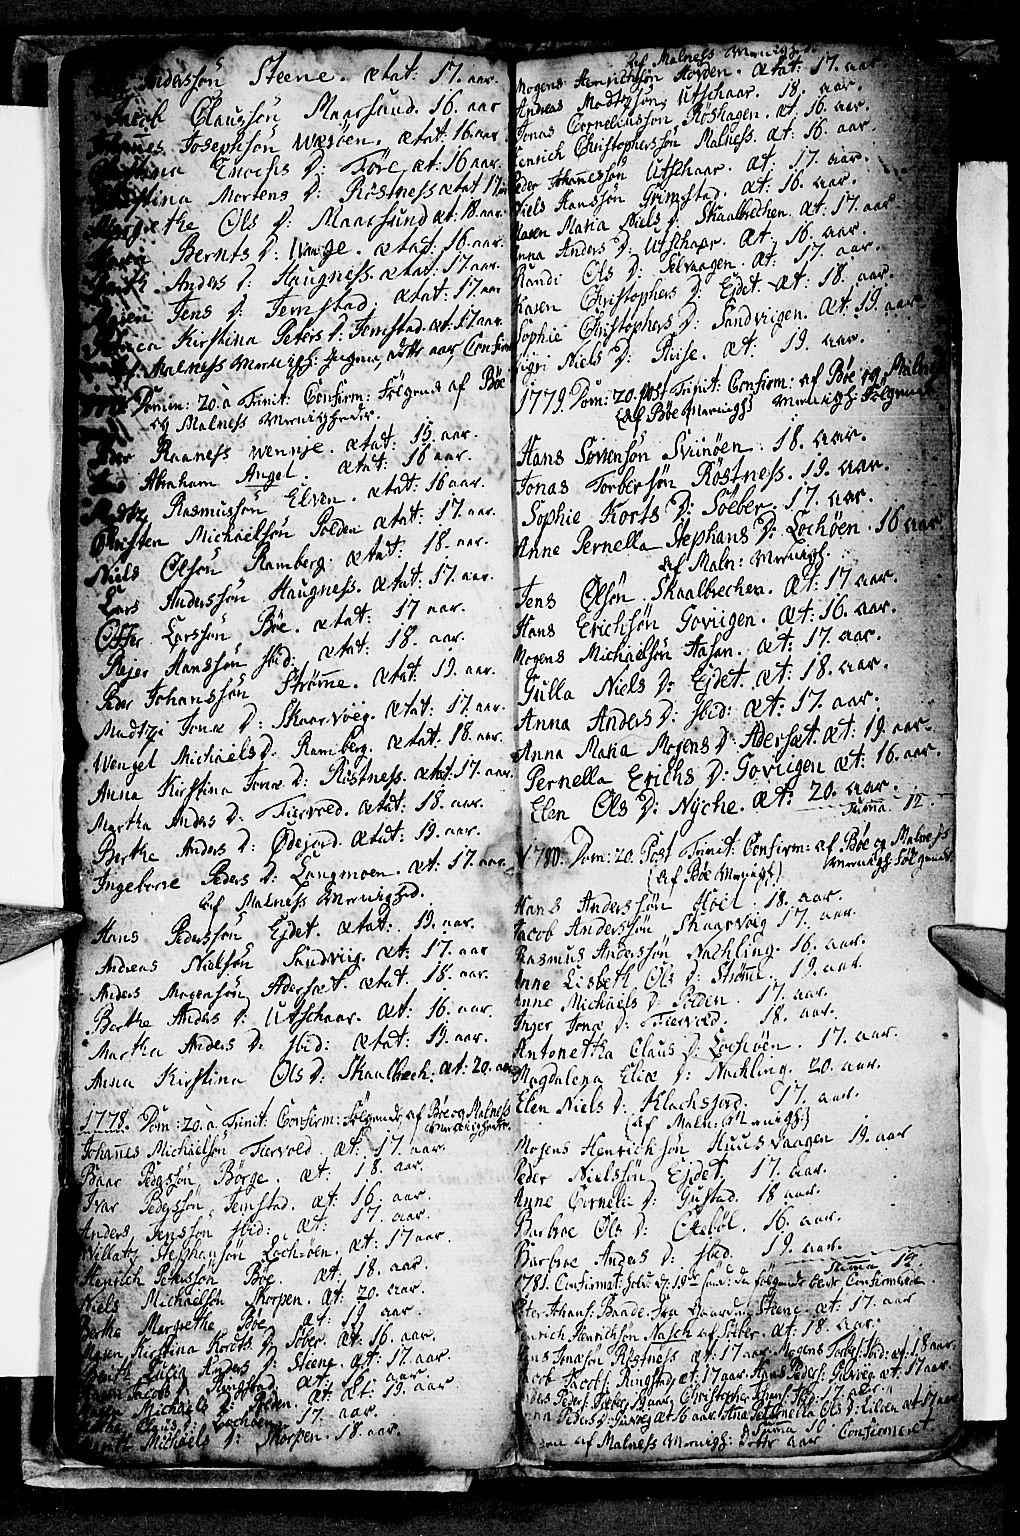 Andersøn Steene. ætat: 17. aar.
Jacob Clausøn Maarsund. 16. aar
Johannes Josephsøn Wæsøen. ætat: 16. aar.
Enochs D: Føre, æt: 16 aar.
Mortens D: Røstness ætat 17
Margrethe Ols D: Maarsund æt: 18. aar.
Bernts D: Vinje. ætat: 16. aar.
Anders D: Haugness. ætat: 17. aar.
Maren Jens D: Jemstad. ætat: 17. aar
Kirstina Peters D: Jemstad. æt: 17. aar.
af Malness Menigh: ingen dette aar Confirm
Domin: 20. a Trinit: Confirm: følgende af Bøe
og Malness Menigheder.
Raaness Wennje. ætat: 15. aar.
Abraham Angel. ætat: 16 aar.
Madtz Rasmussøn Elven. ætat: 16 aar.
Christen Michaelsøn Polden ætat: 17. aar.
Niels Olsøn Ramberg. ætat: 18. aar.
Lars Andersøn Haugness. ætat: 17. aar.
Offer Larssøn Bøe. ætat: 17 aar.
Rejer Hanssøn Ibid: ætat: 18. aar.
Peder Johanssøn Strømme. ætat: 19. aar.
Madtzi Jonæ D: Skaarvoeg. ætat: 17. aar.
Wengel Michaels D. Ramberg. ætat: 18. aar.
Anna Kirstina Jonæ D: Røstness. ætat: 17. aar.
Martha Anders D: Fiærvold. ætat: 18. aar.
Berthe Anders D: Ødejord ætat: 19. aar.
Ingeborre Peders D: Langmoen. æt: 17. aar.
af Malness Menighed.
Hans Pederssøn Ejdet. ætat: 19. aar.
Andreas Nielsøn Sandviig. æt: 17. aar
Anders Mogensøn Adersæt. ætat: 18. aar.
Berthe Anders D: Utschaar. æt: 16. aar.
Martha Anders D: Ibid: ætat: 19. aar.
Anna Kirstina Ols D: Skaalbrech. æt: 20. aar
1778. Dom: 20. à Trinit: Confirm: følgende af Bøe og Malness
Menigheder.
Johannes Michaelsøn Fiærvold. æt: 17. aar.
Baar Pederssøn Børge. æt: 18. aar.
Ivar Pederssøn Jemstad. æt: 16. aar.
Anders Jenssøn Ibid: æt: 17. aar.
Willatz Stephansøn Lochøen. æt: 17 aar.
Henrich Peterssøn Bøe. æt: 18. aar.
Niels Michaelsøn Skorpen. æt: 20. aar.
Berthe Margrethe Bøe. æt: 19. aar.
Maren Kirstina Kordts D. Søber. æt: 16. aar.
Lucia Anders D: Steene. æt: 17. aar.
Jacobs D: Ringstad. æt: 16. aar.
Michaels D: Poden. æt: 19. aar.
Claus D: Lochøen. 17. aar.
Michaels D: Skorpen. 18. aar.
af Malness Menighed.
Mogens Henrichsøn Hovden. ætat: 17. aar
Andreas Madtzøn, Utschaar. 18. aar.
Jonas Corneliussøn Røshagen. æt. 16. aar.
Henrich Christopherssøn Malness. æt: 16. aar.
Peder Johannessøn Utschaar. æt. 17. aar.
Niels Hanssøn Grimstad. æt: 16. aar.
Karen Maria Niels D: Skaalbrechen. æt: 17. aar.
Anna Anders D: Utschaar. æt. 16. aar.
Randi Ols D: Selvaagen. æt: 17. aar.
Karen Christophers D: Ejdet æt: 18. aar.
Sophie Christophers D: Sandviigen. æt: 19. aar.
Sigri Niels D: Riise. æt: 19. aar.
1779. Dom: 20. Post Trinit: Confirm: af Bøe og Malness
(af Bøe Menigh) Menigh: følgende
Hans Sørensøn Sviinøen. 18. aar.
Jonas Torbersøn Røstness. 19. aar.
Sophie Korts D: Søeber. 17. aar.
Anne Pernella Stephans D: Lochøen. 16 aar.
af Maln: Menigh.
Jens Olsøn. Skaalbrechen. æt: 17 aar.
Hans Erichsøn Goviigen. æt: 16. aar.
Mogens Michaelsøn Aasan. æt: 17. aar.
Gulla Niels D: Ejdet. æt: 18. aar.
Anna Anders D: Ibid: æt: 17. aar.
Anna Maria Mogens D: Adersæt. æt: 19. aar.
Pernella Erichs D: Goviigen æt: 16. aar.
Elen Ols D: Nyche. æt: 20. aar.
Summa 12.
1780. Dom: 20. Post Trinit: Confirm: af Bøe og Malness
(af Bøe Menigh) Menigh: følgende.
Hans Andersøn Hoel. 18. aar.
Jacob Andersøn Skaarvoeg 17. aar.
Rasmus Andersøn Nøchling. 16. aar.
Anne Lisbeth Ols D: Strømme. 19. aar.
Anne Michaels D: Poden. 17. aar.
Inger Jonæ D: Fiærvold. 18. aar.
Antonetha Claus D: Lochøen. 17. aar.
Magdalena Eliæ D: Nøchling. 20. aar.
Elen Niels D: Klachsjord. 17. aar.
(af Maln: Menigh)
Mogens Henrichsøn Huusvaagen 19. aar
Peder Nielssøn Ejdet. 17. aar.
Anne Corneli D: Gustad. 18 aar.
Barbroe Ols D: Ekebøl. 16. aar.
Barbroe Anders D: Ibid. 19. aar.
Summa 14
1781. Confirmat: følgende blev Confirmerede
Peter Johans: Baade fra Steene. æt: 17 aar
Henrich Henrichsøn Nasch af Søeber. æt: 18. aar.
Jonasøn Røstness æt: 17 aar. Mogens Torbers: Ibid: æt: 18 aar.
Jacob Jacobs: Ringstad, æt: 17 aar. Hans Peders: Guvog æt: 17 aar.
Peders: Søeber. aar, Christopher Ibid: 17. aar
Peders D: Guvog æt 16 aar. Ane Petronella Ols D: Lilien æt 17 aar
Summa 10
af Malness Menigh: dette aar Confirmeret.